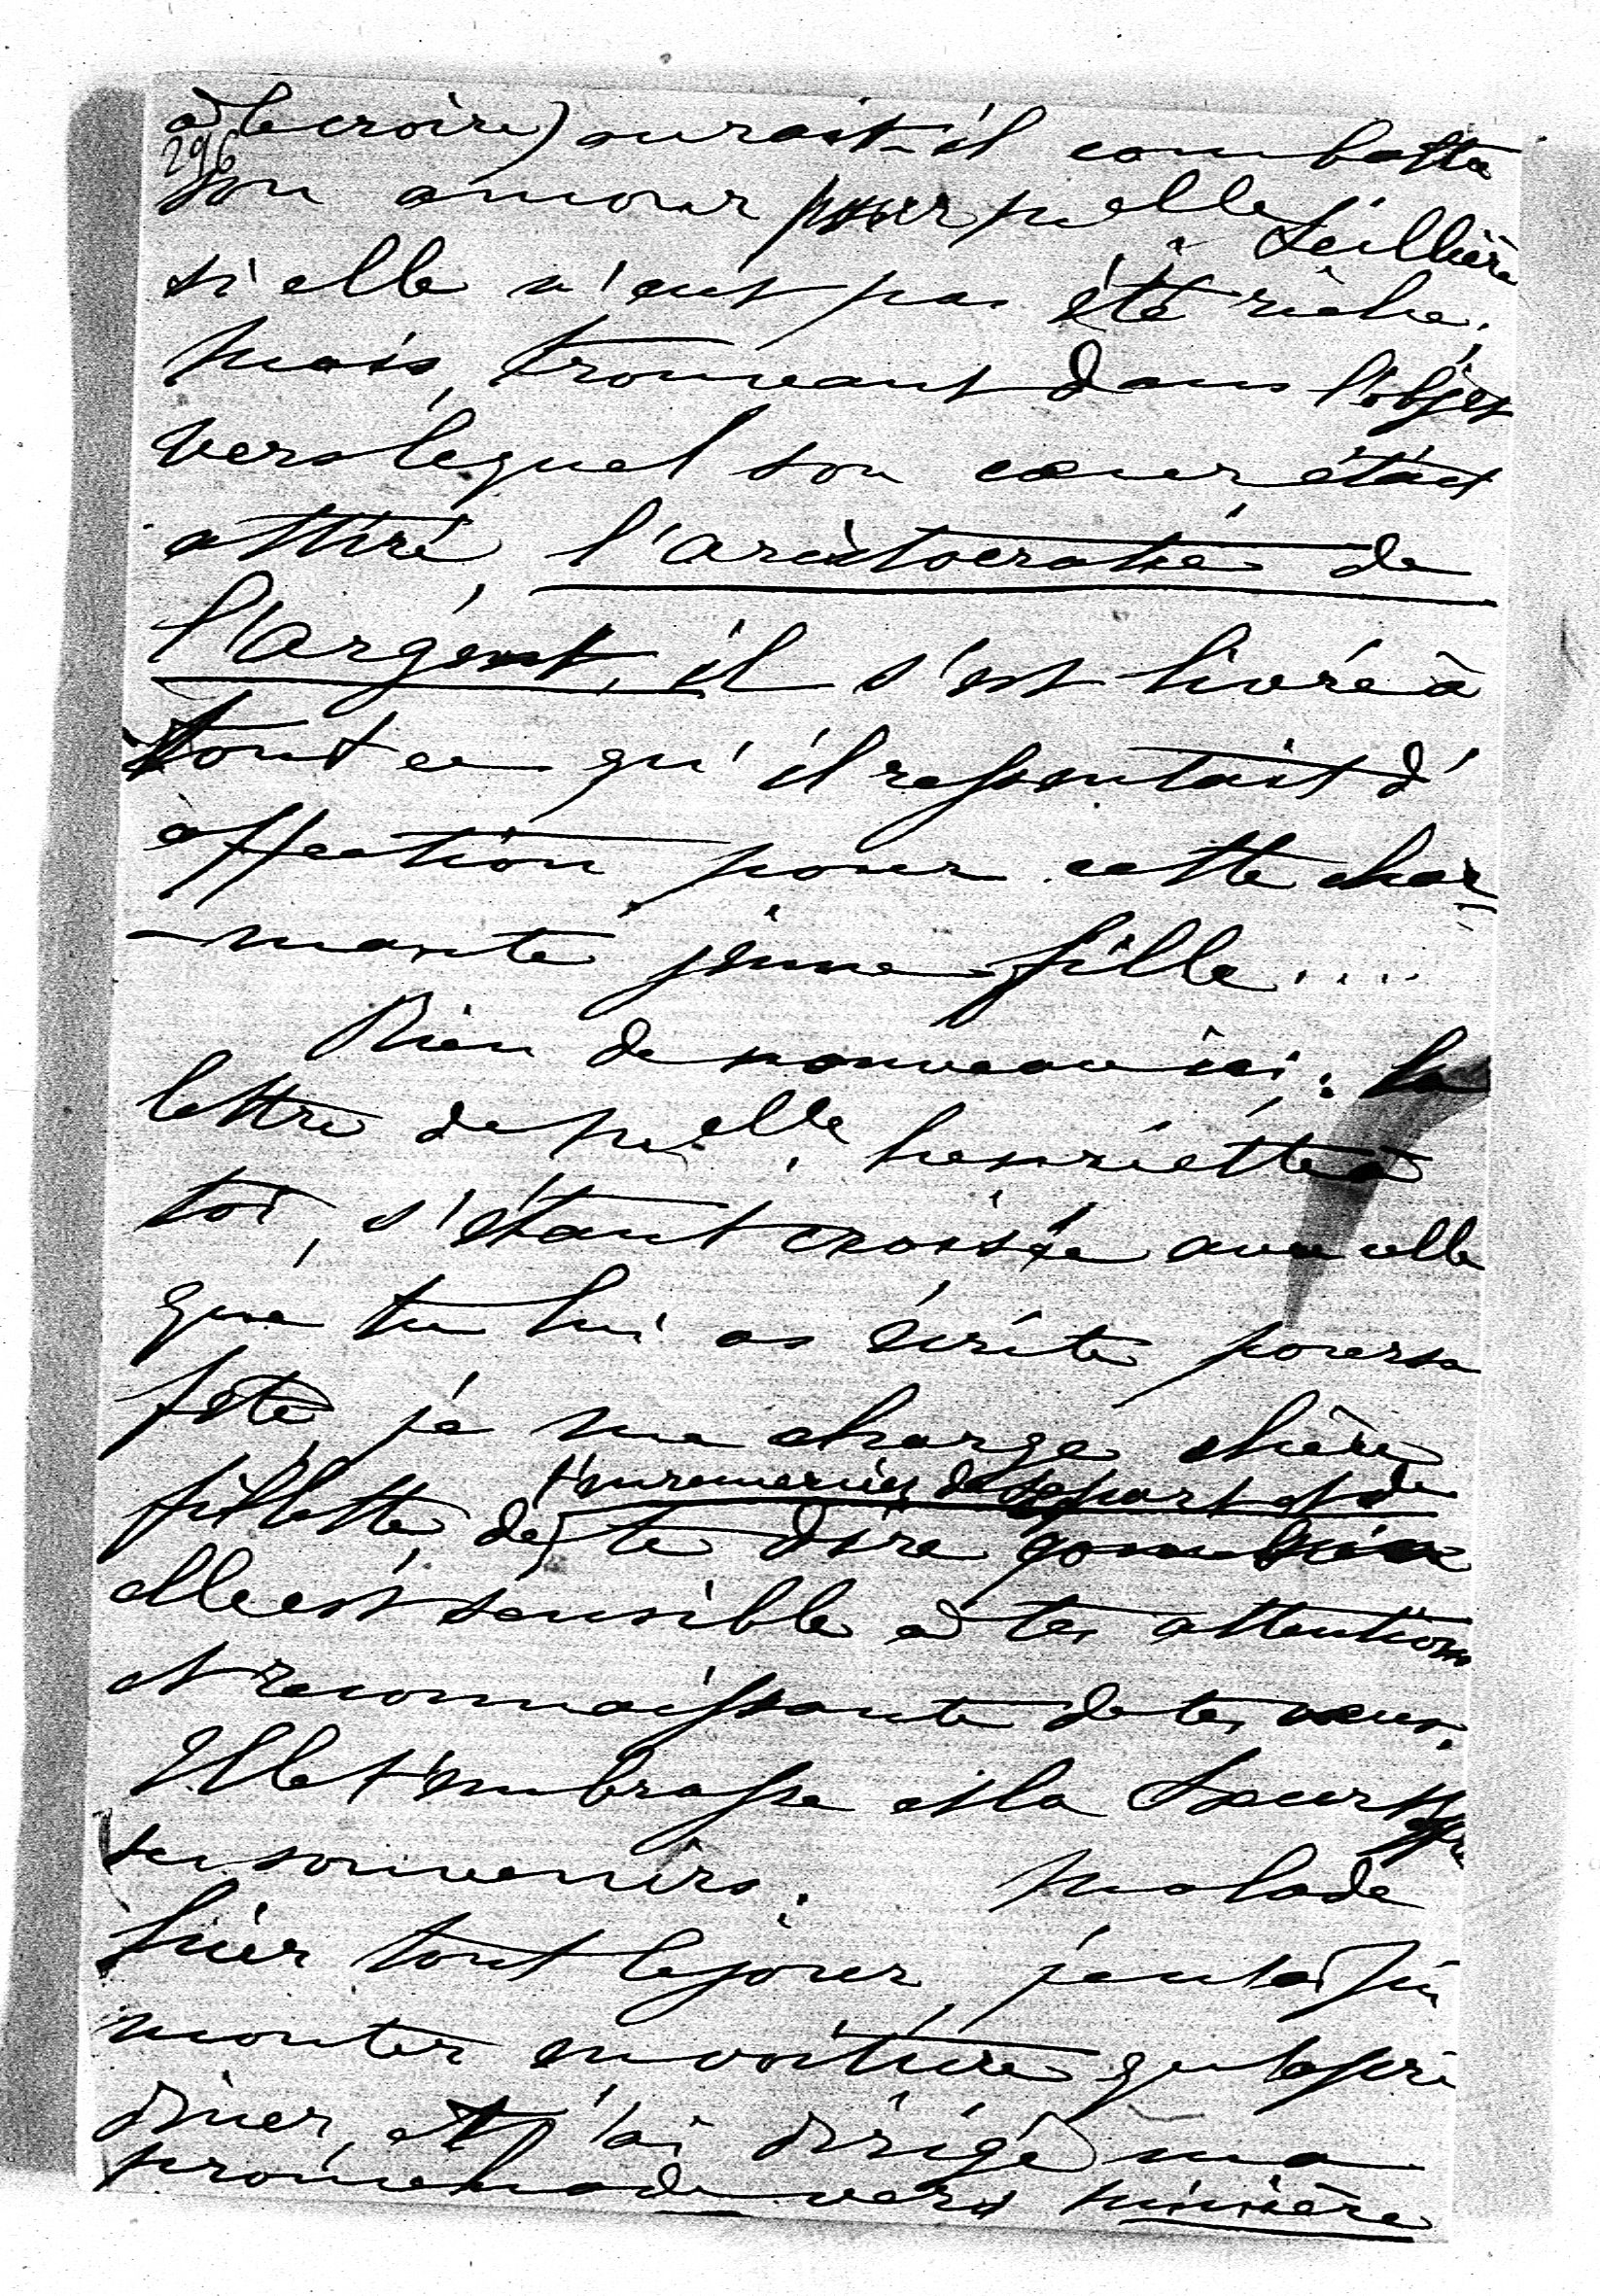 à le croire) aurait-il combattu
296
son amour pour melle Seillière
si elle n'eut pas été riche;
mais, trouvant dans l'objet
vers lequel son cœur était
attiré, l'aristocratie de
l'Argent, il s'est livré à
tout ce qu'il ressentait d'
affection pour cette char
-mante jeune fille....
Rien de nouveau ici: la
lettre de melle henriette à
toi, s'étant croisée avec celle
que tu lui as écrite pour sa
fête, je me charge, chère
t'en remercier de sa part et de
fillette, de te dire combien
elle est sensible à tes attentions
et reconnaissante de tes vœux.
Elle t'embrasse et la Sœur
ses souvenirs. Malade
hier tout le jour, je
monter en voiture qu'après
diner, et j'ai dirigé ma
promenade vers